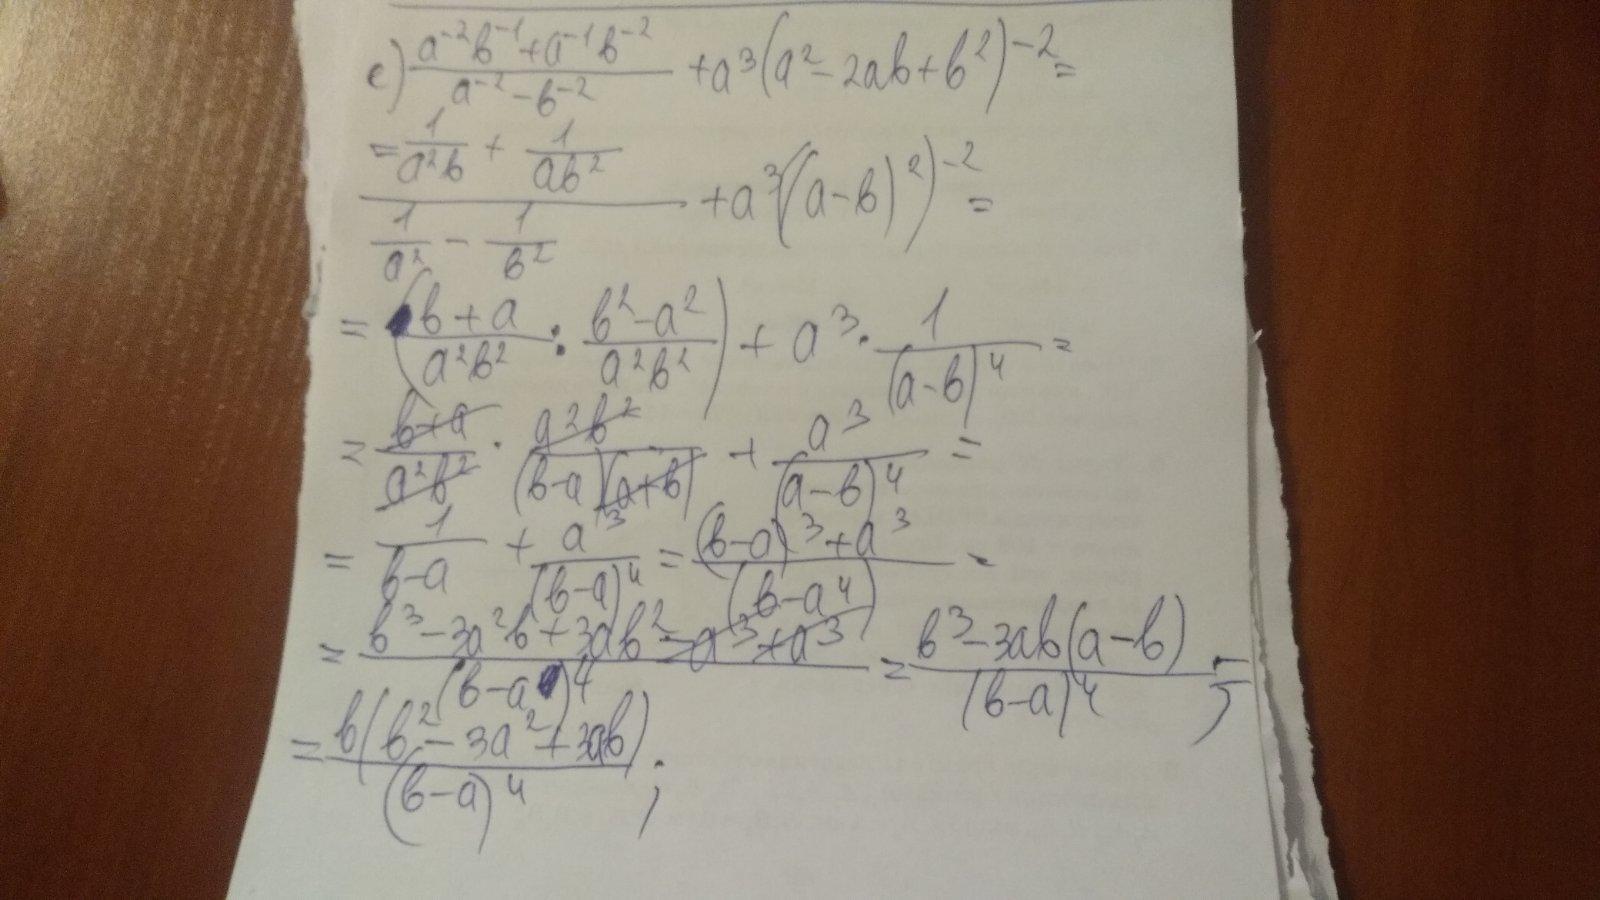 е) (a⁻²b⁻¹+a⁻¹b⁻²)/(a⁻²-b⁻²) + a³(a²-2ab+b²)⁻² =
= (1/(a²b) + 1/(ab²))/(1/a² - 1/b²) + a³((a-b)²)⁻² =
= ((b+a)/(a²b²) : (b²-a²)/(a²b²)) + a³ · 1/(a-b)⁴ =
= (b+a)/(a²b²) · (a²b²)/((b-a)(a+b)) + a³/(a-b)⁴ =
= 1/(b-a) + a³/(b-a)⁴ = ((b-a)³+a³)/(b-a⁴) -
= (b³-3a²b+3ab²-a³+a³)/(b-a)⁴ = (b³-3ab(a-b))/(b-a)⁴ ; =
= b(b²-3a²+3ab)/(b-a)⁴ ;